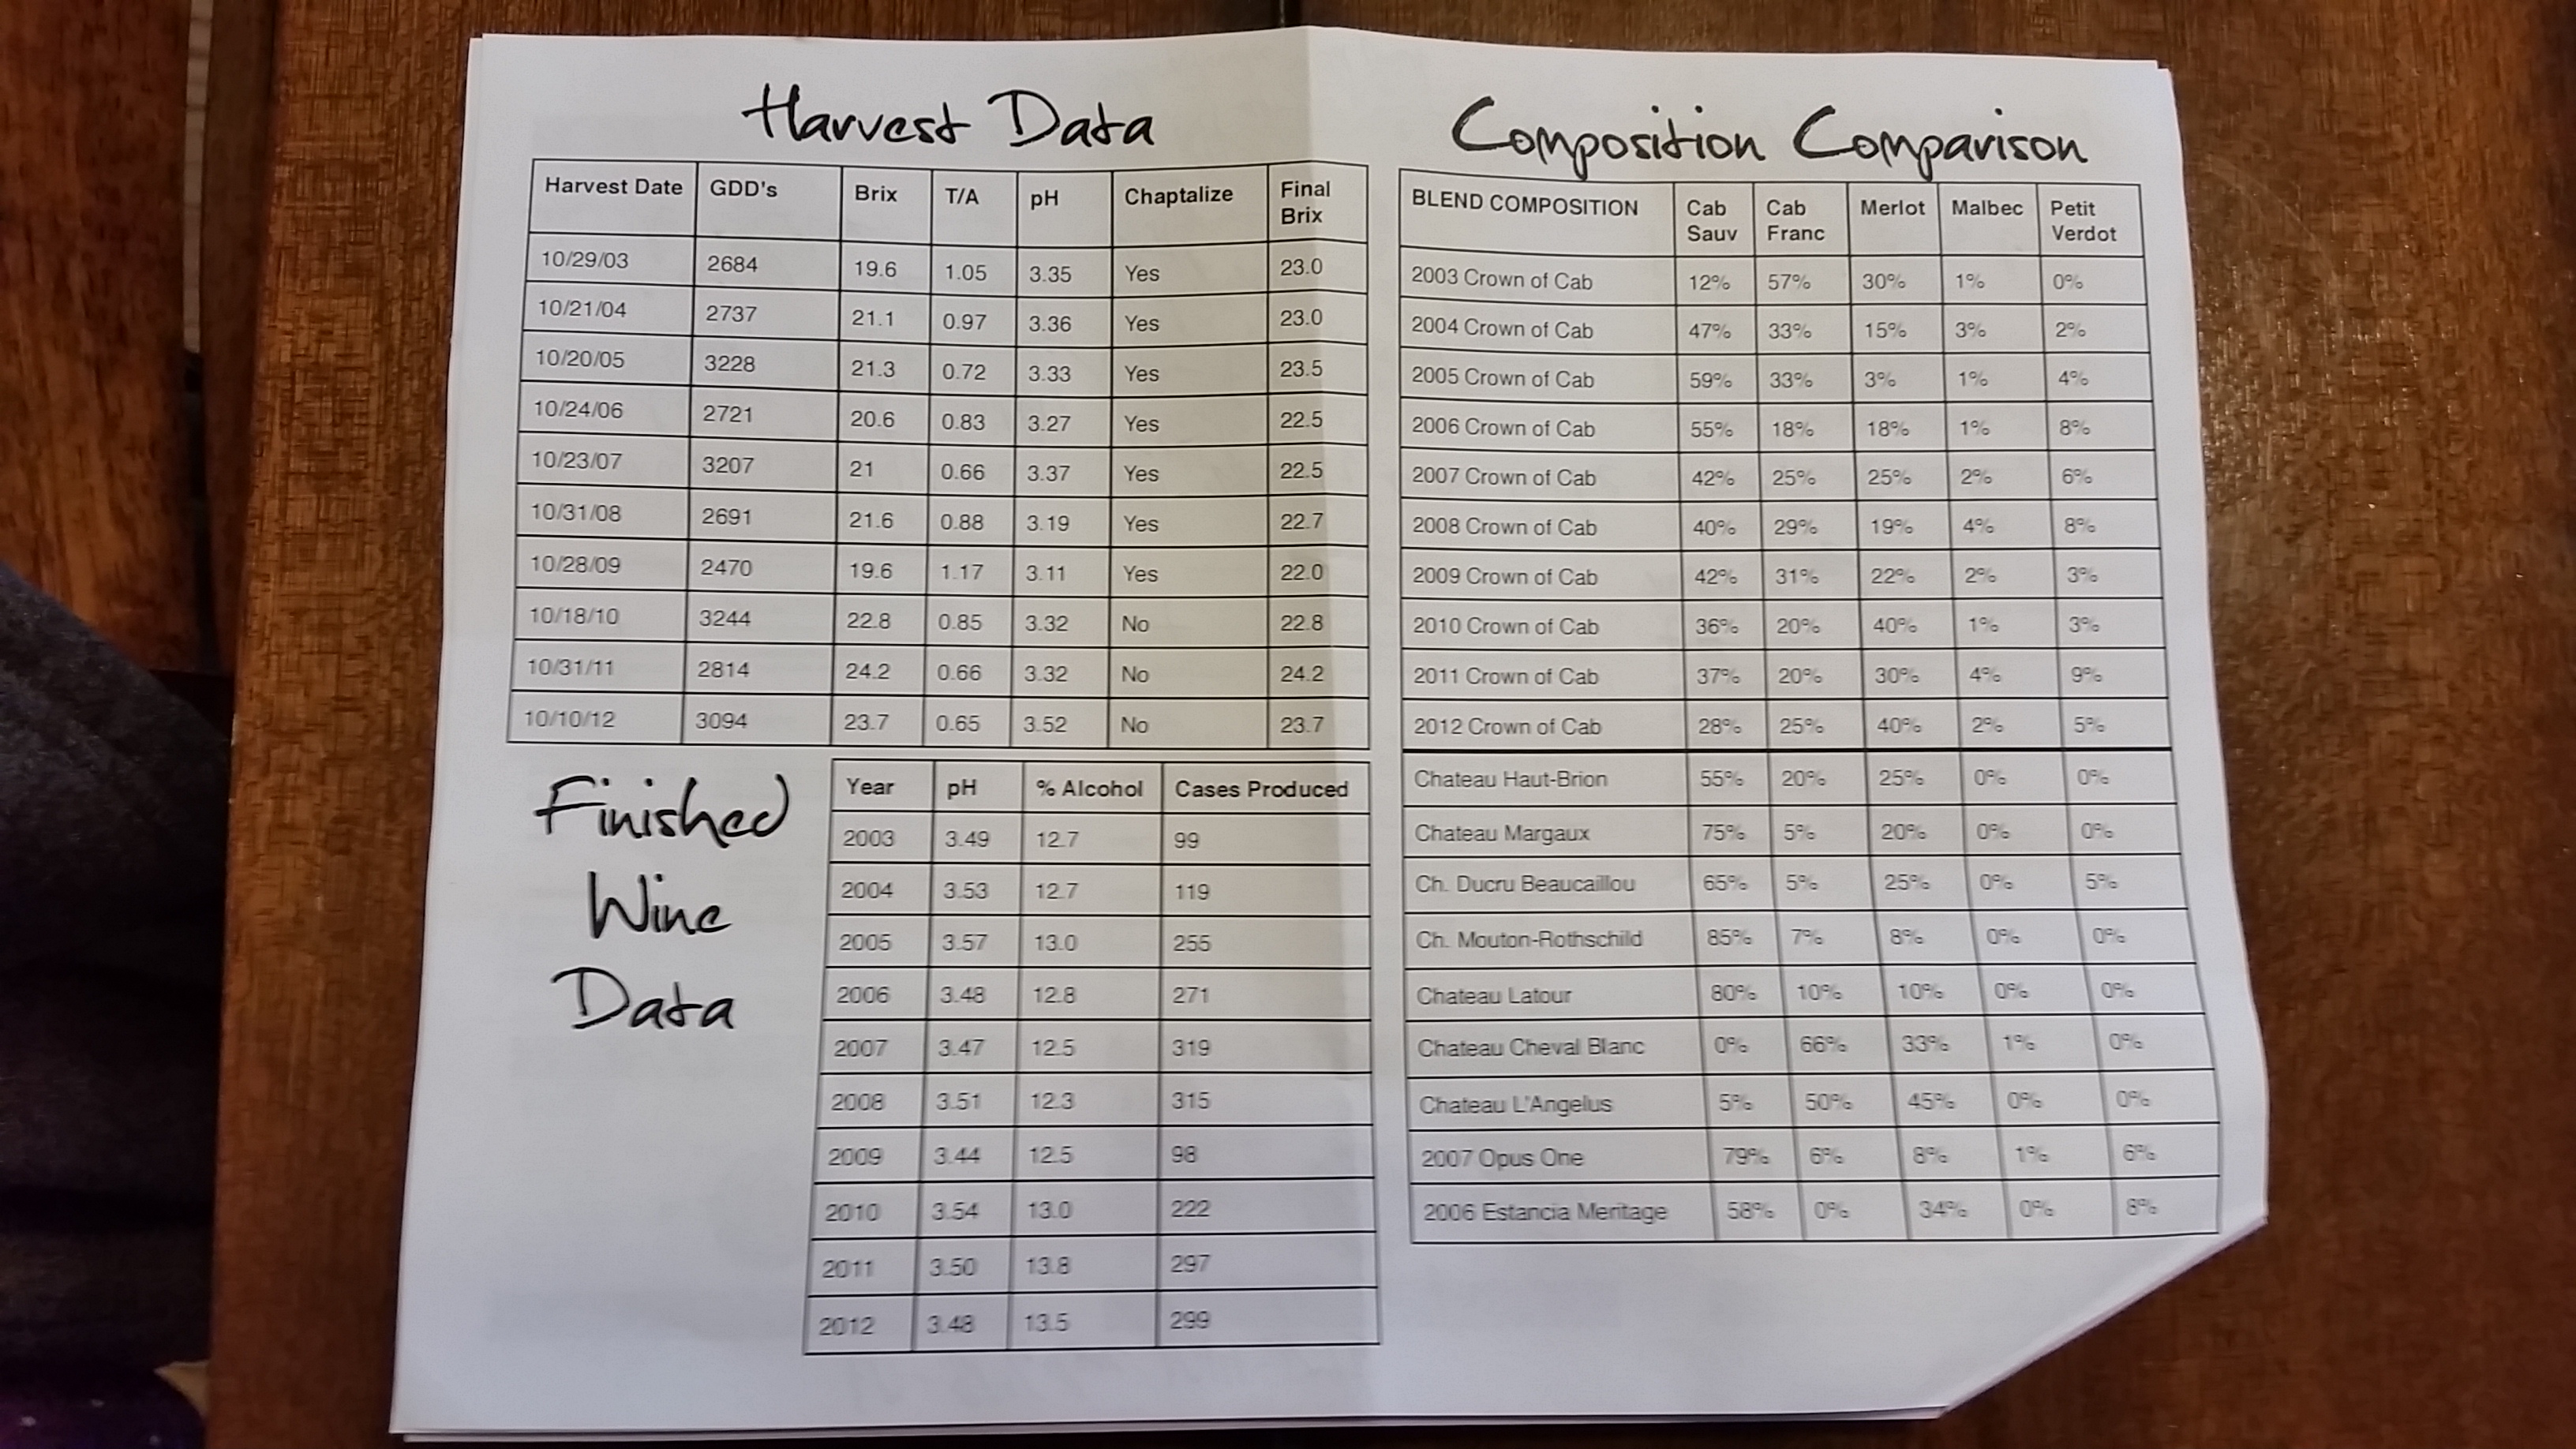 Harvest Data
Harvest Date GDD's Brix T/A pH Chaptalize Final Brix
10/29/03 2684 19.6 1.05 3.35 Yes 23.0
10/21/04 2737 21.1 0.97 3.36 Yes 23.0
10/20/05 3228 21.3 0.72 3.33 Yes 23.5
10/24/06 2721 20.6 0.83 3.27 Yes 22.5
10/23/07 3207 21 0.66 3.37 Yes 22.5
10/31/08 2691 21.6 0.88 3.19 Yes 22.7
10/28/09 2470 19.6 1.17 3.11 Yes 22.0
10/18/10 3244 22.8 0.85 3.32 No 22.8
10/31/11 2814 24.2 0.66 3.32 No 24.2
10/10/12 3094 23.7 0.65 3.52 No 23.7
Finished
Wine
Data
Year pH % Alcohol Cases Produced
2003 3.49 12.7 99
2004 3.53 12.7 119
2005 3.57 13.0 255
2006 3.48 12.8 271
2007 3.47 12.5 319
2008 3.51 12.3 315
2009 3.44 12.5 98
2010 3.54 13.0 222
2011 3.50 13.8 297
2012 3.48 13.5 299
Composition Comparison
BLEND COMPOSITION Cab Sauv Cab Franc Merlot Malbec Petit Verdot
2003 Crown of Cab 12% 57% 30% 1% 0%
2004 Crown of Cab 47% 33% 15% 3% 2%
2005 Crown of Cab 59% 33% 3% 1% 4%
2006 Crown of Cab 55% 18% 18% 1% 8%
2007 Crown of Cab 42% 25% 25% 2% 6%
2008 Crown of Cab 40% 29% 19% 4% 8%
2009 Crown of Cab 42% 31% 22% 2% 3%
2010 Crown of Cab 36% 20% 40% 1% 3%
2011 Crown of Cab 37% 20% 30% 4% 9%
2012 Crown of Cab 28% 25% 40% 2% 5%
Chateau Haut-Brion 55% 20% 25% 0% 0%
Chateau Margaux 75% 5% 20% 0% 0%
Ch. Ducru Beaucaillou 65% 5% 25% 0% 5%
Ch. Mouton-Rothschild 85% 7% 8% 0% 0%
Chateau Latour 80% 10% 10% 0% 0%
Chateau Cheval Blanc 0% 66% 33% 1% 0%
Chateau L'Angelus 5% 50% 45% 0% 0%
2007 Opus One 79% 6% 8% 1% 6%
2006 Estancia Meritage 58% 0% 34% 0% 8%